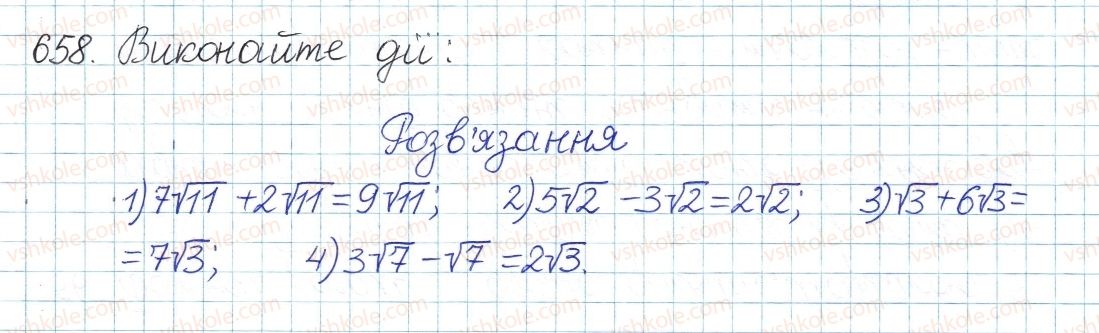 658. Виконайте дії:
Розв'язання
1) 7√11 + 2√11 = 9√11; 2) 5√2 - 3√2 = 2√2; 3) √3 + 6√3 =
= 7√3; 4) 3√7 - √7 = 2√3.